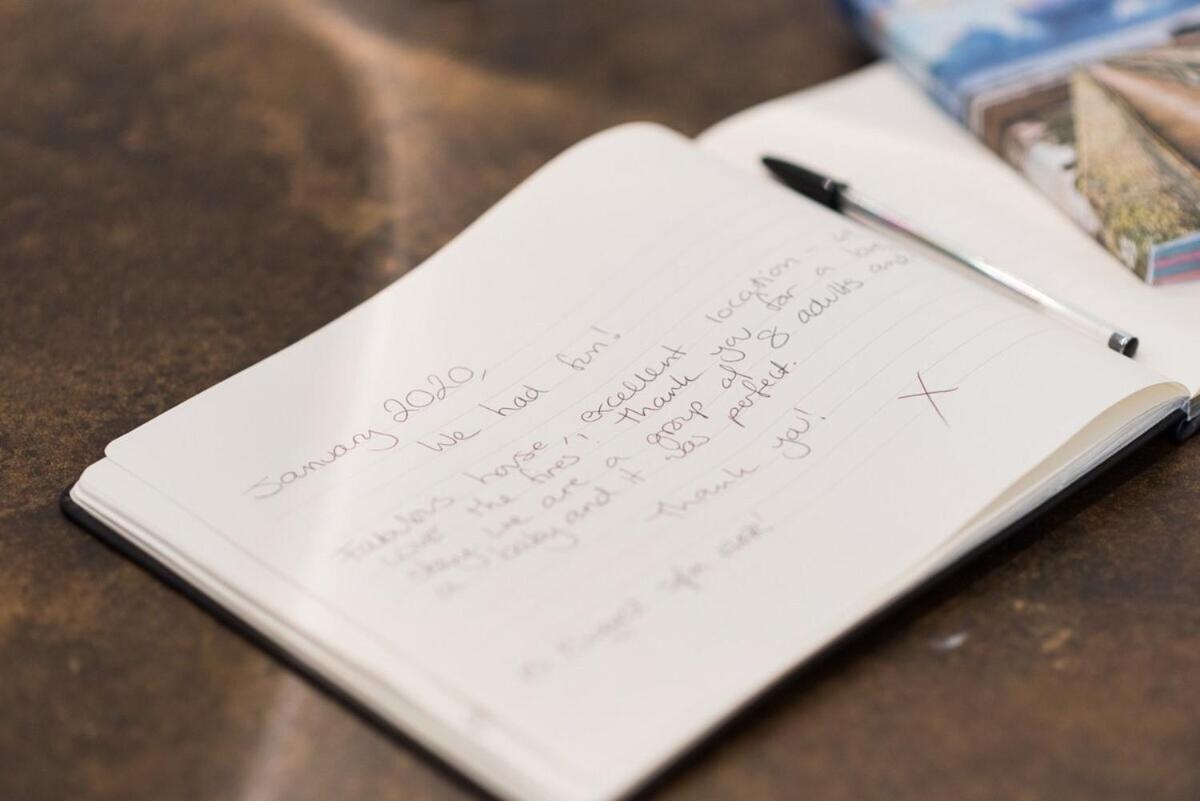 January 2020,
We had fun!
Fabulous house, excellent location -
LOVE the fires! Thank you for a
stay. We are a group of 8 adults and
a baby and it was perfect.
Thank you!
X